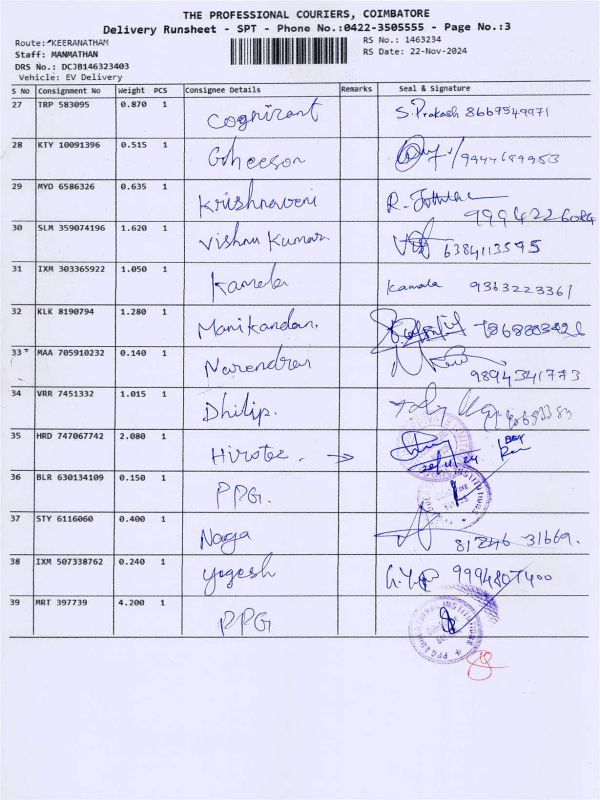 THE PROFESSIONAL COURIERS, COIMBATORE
Delivery Runsheet - SPT - Phone No.:0422-3505555 - Page No.:3
Route: KEERANATHAM
RS No.: 1463234
Staff: MANMATHAN
RS Date: 22-Nov-2024
DRS No.: DCJB146323403
Vehicle: EV Delivery
S No Consignment No Weight PCS Consignee Details Remarks Seal & Signature
27 TRP 583095 0.870 1 Cognizant S. Prakash 8667549971
28 KTY 10091396 0.515 1
29 MYD 6586326 0.635 1 Krishnaveni
30 SLM 359074196 1.620 1 Vishnu Kumar 6384113595
31 IXM 303365922 1.050 1 Kamala Kamala 9363223361
32 KLK 8190794 1.280 1 Manikandan.
33 MAA 705910232 0.140 1 Narendran 9894341773
34 VRR 7451332 1.015 1 Dhilip.
35 HRD 747067742 2.080 1 Hirotec. → 22/11/24
36 BLR 630134109 0.150 1 PPG.
37 STY 6116060 0.400 1 Naga 81246 31669.
38 IXM 507338762 0.240 1 Yogesh 9994807400
39 MRT 397739 4.200 1 PPG